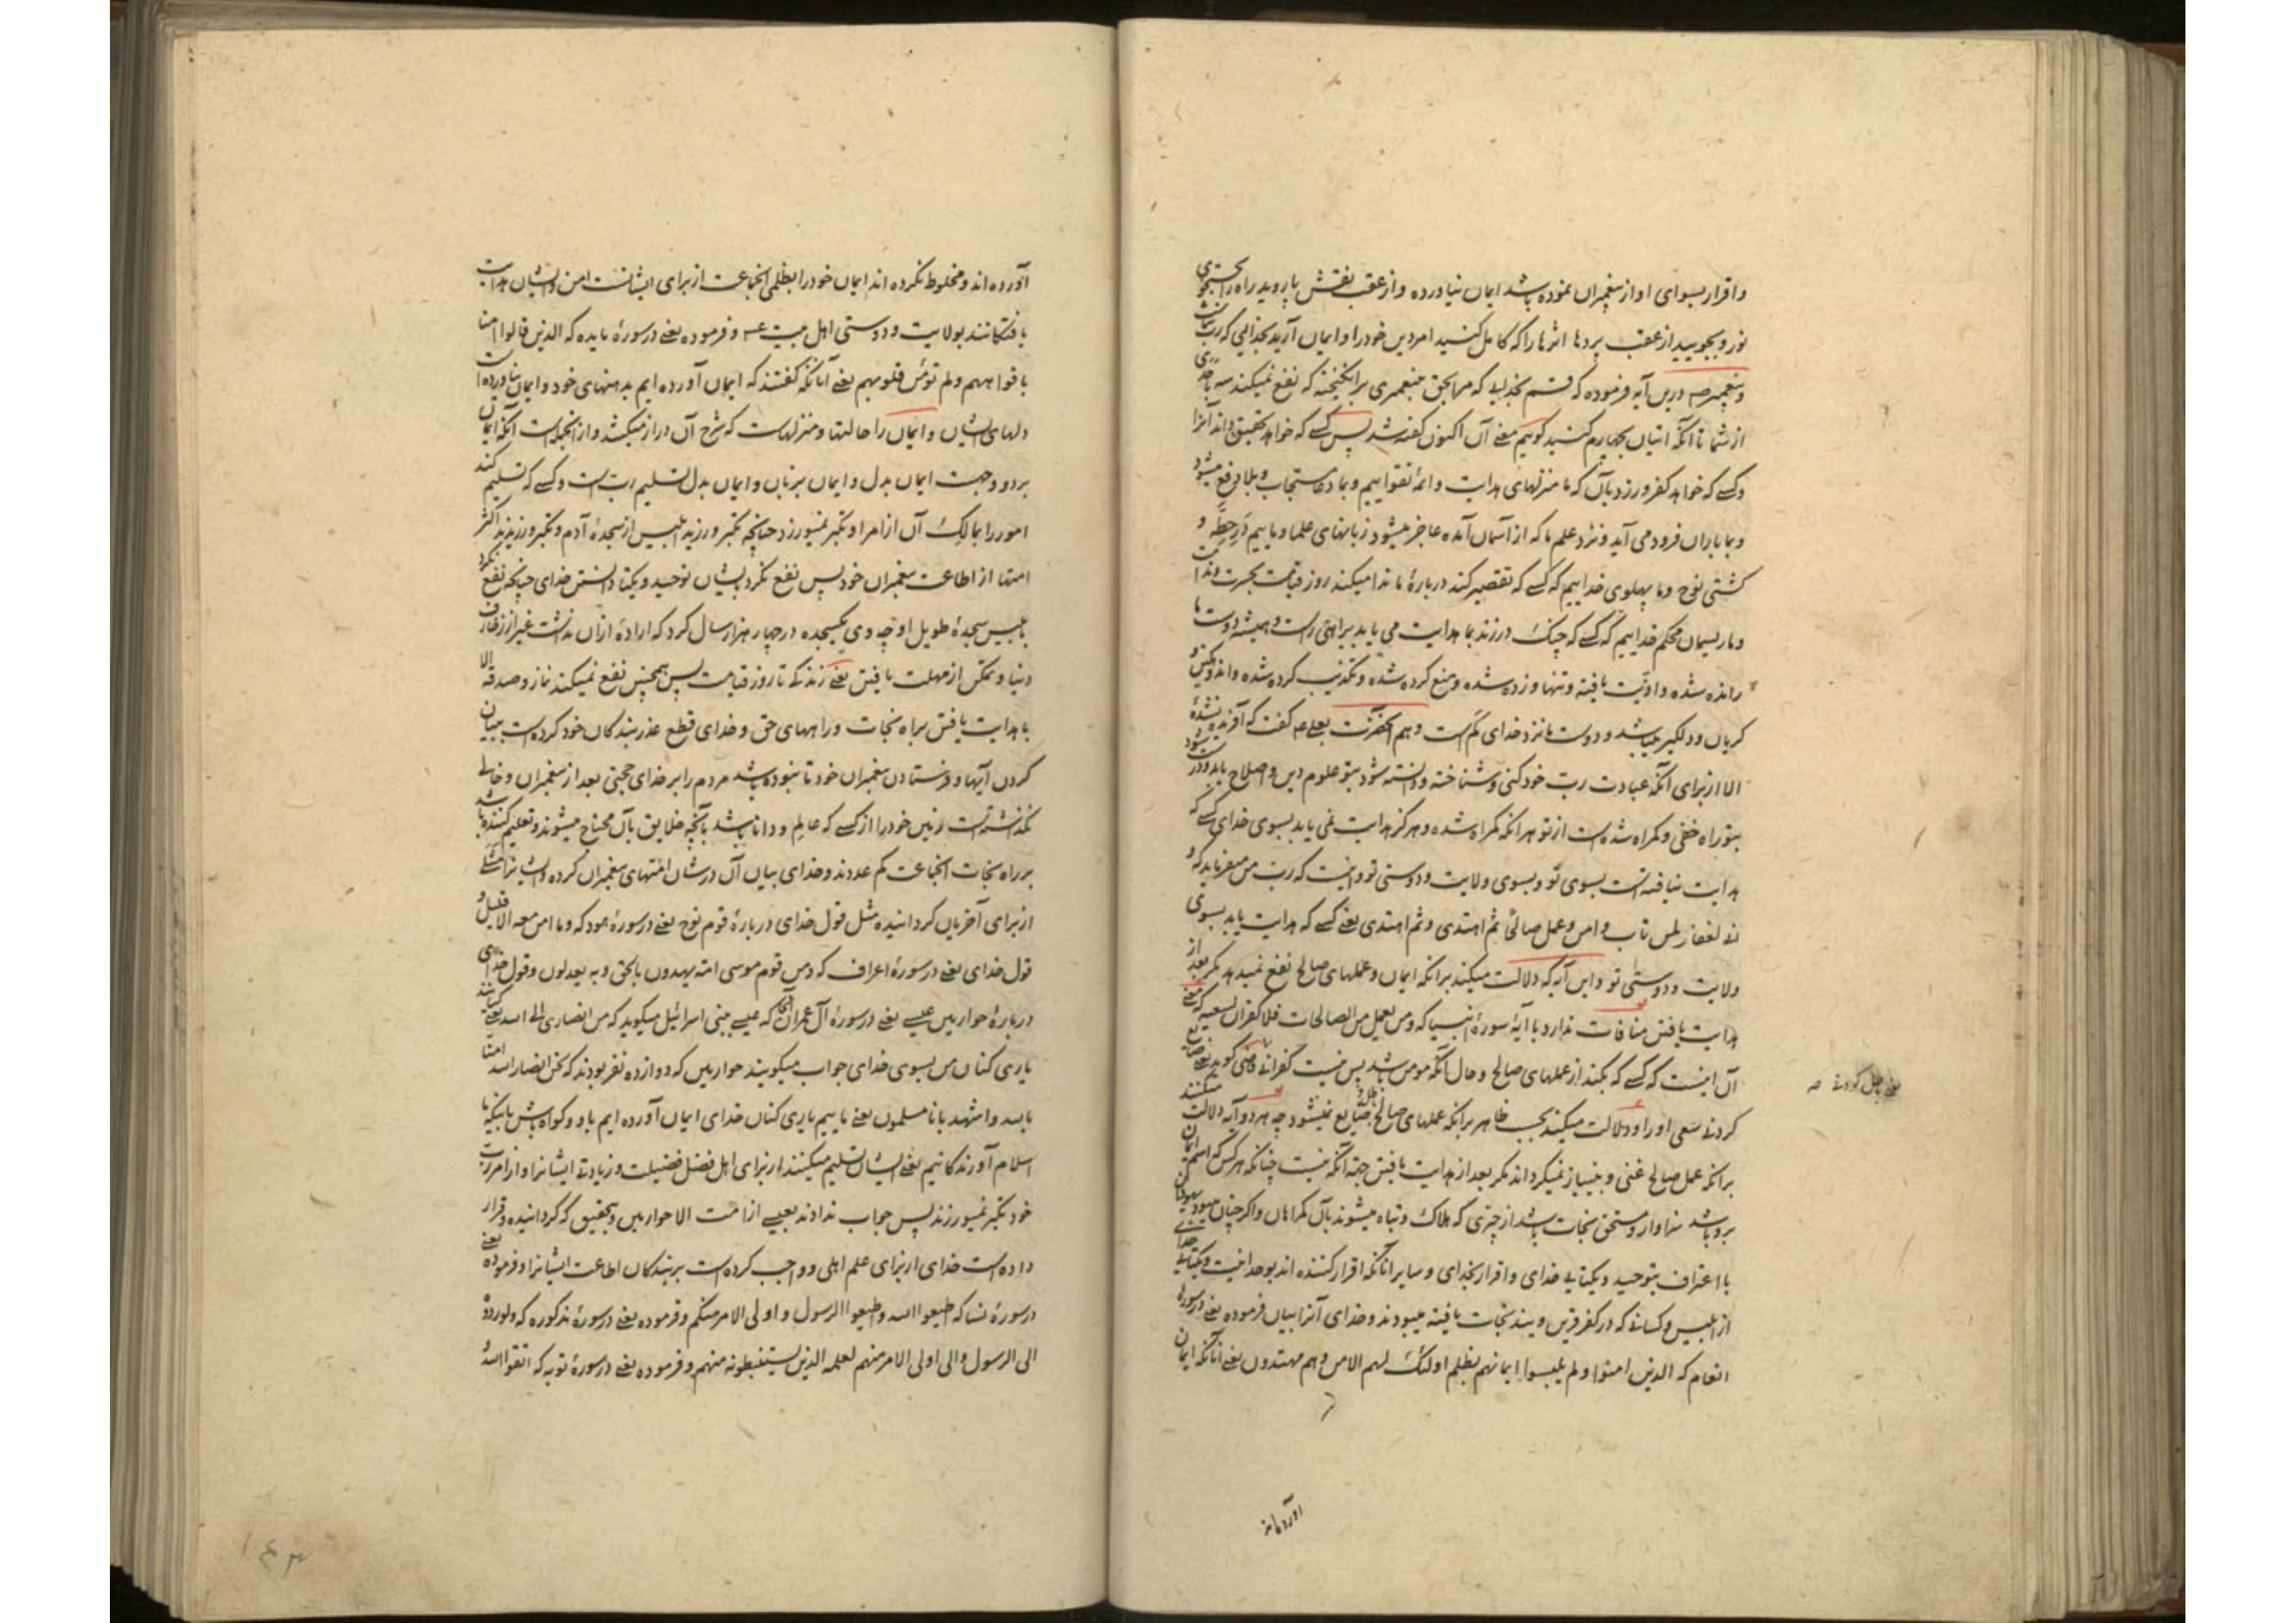 واقرار بسوای او از پیغمبران نموده باشد ایمان نیاورده و از عقب نقش پا روید راه را بجستجوی
نور و بجویید از عقب پردها اثرها را که کامل کنید امر دین خود را و ایمان آرید بخدایی که رب شماست
و پیغمبر صه درین آیه فرموده که قسم بخدایی که مرا بحق پیغمبری برانگیخته که نفع نمیکند سه باخدای
از شما تا آنکه اتیان بچهارم کنید کوییم معنی آن اکنون گفته شد پس کسی که خواهد تحقیق داند آنرا
و کسی که خواهد کفر ورزد بآن که ما منزلهای هدایت و ائمه تقواییم و بما دعا مستجاب و بلا دفع میشود
و بما باران فرود می آید و نزد علم ما که از آسمان آمده عاجز میشود زبانهای علما و ماییم در حطه و
کشتی نوح و ما پهلوی خداییم که کسی که تقصیر کند درباره ما ندا میکند روز قیامت بحسرت و ندامت
و ما ریسمان محکم خداییم که کسی که چنگ درزند بما هدایت می یابد براهی راست و همیشه دوست ما
رانده شده و اذیت یافته و تنها و زده شده و منع کرده شده و تکذیب کرده شده و اندوهگین و
گریان و دلگیر میباشد و دوست ما نزد خدای کم است و هم آنحضرت بعلی عه گفت که آفریده نشدهٔ
الا از برای آنکه عبادت رب خود کنی و شناخته و دانسته شود بتو علوم دین و اصلاح یابد و درست شود
بتو راه خفی و گمراه شده است از تو هر آنکه گمراه شده و هرگز هدایت نمی یابد بسوی خدای کسی که
هدایت نیافته است بسوی تو و بسوی ولایت و دوستی تو و اینست که رب من میفرماید که و
انی لغفار لمن تاب و امن و عمل صالحا ثم اهتدی و ثم اهتدی یعنی کسی که هدایت یابد بسوی
ولایت و دوستی تو و این آیه که دلالت میکند برانکه ایمان و عملهای صالح نفع نمیدهد مگر بعد از
هدایت یافتن منافات ندارد با آیهٔ سورهٔ انبیا که و من یعمل من الصالحات فلا کفران لسعیه که معنی
آن اینست که کسی که بکند از عملهای صالح و حال آنکه مومن باشد پس نیست کفرانی یعنی ضایع
کردنی سعی او را و دلالت میکند بحسب ظاهر برانکه عملهای صالح ضایع نمیشود چه هر دو آیه دلالت میکنند
برانکه عمل صالح غنی و بینیاز نمیگرداند مگر بعد از هدایت یافتن جهة آنکه نیست چنانکه هر کس که اسم ایمان
برو باشد سزاوار و مستحق نجات باشد از چیزی که هلاک و تباه میشوند بآن گمراهان و اگر چنان میبود یهودان
با اعتراف بتوحید و یکتایی خدای و اقرار بخدای و سایر آنانکه اقرار کننده اند بوحدانیت و یکتایی خدای
از ابلیس و کسانی که در کفر قرین ویند نجات یافته میبودند و خدای آنرا بیان فرموده یعنی در سورهٔ
انعام که الذین امنوا و لم یلبسوا ایمانهم بظلم اولئک لهم الامن و هم مهتدون یعنی آنانکه ایمان
آورده اند
آورده اند و مخلوط نکرده اند ایمان خود را بظلمی آنجماعت از برای ایشانست امن و ایشان هدایت
یافتگانند بولایت و دوستی اهل بیت عه و فرموده یعنی در سورهٔ مایده که الذین قالوا امنا
بافواههم و لم تؤمن قلوبهم یعنی آنانکه گفتند که ایمان آورده ایم بدهنهای خود و ایمان نیاورده است
دلهای ایشان و ایمان را حالتها و منزلهاست که شرح آن دراز میکشد و از آنجمله است آنکه ایمان
بر دو وجهست ایمان بدل و ایمان بزبان و ایمان بدل تسلیم رب است و کسی که تسلیم کند
امور را بمالک آن از امر او تکبر نمیورزد چنانچه تکبر ورزید ابلیس از سجدهٔ آدم و تکبر ورزیدند اکثر
امتها از اطاعت پیغمبران خود پس نفع نکرد بایشان توحید و یکتا دانستن خدای چنانچه نفع نکرد
بابلیس سجدهٔ طویل او چه وی یکسجده در چهار هزار سال کرد که ارادهٔ از آن نداشت غیر از زخارف
دنیا و تمکن از مهلت یافتن یعنی زندگی تا روز قیامت پس همچنین نفع نمیکند نماز و صدقه الا
با هدایت یافتن براه نجات و راههای حق و خدای قطع عذر بندگان خود کرده است ببیان
کردن آیها و فرستادن پیغمبران خود تا نبوده باشد مردم را بر خدای حجتی بعد از پیغمبران و خالی
نگذاشته است زمین خود را از کسی که عالم و دانا باشد بآنچه خلایق بآن محتاج میشوند و تعلیم کننده باشد
بر راه نجات آنجماعت کم عددند و خدای بیان آن در شان امتهای پیغمبران کرده و ایشانرا مثلی
از برای آخریان گردانیده مثل قول خدای دربارهٔ قوم نوح یعنی در سورهٔ هود که و ما امن معه الا قلیل و
قول خدای یعنی در سورهٔ اعراف که و من قوم موسی امة یهدون بالحق و به یعدلون و قول خدای
دربارهٔ حواریین عیسی یعنی در سورهٔ آل عمران آنجا که عیسی ببنی اسرائیل میگوید که من انصاری الی الله یعنی کیانند
یاری کنان من بسوی خدای جواب میگویند حواریین که دوازده نفر بودند که نحن انصار الله امنا
بالله و اشهد بانا مسلمون یعنی ماییم یاری کنان خدای ایمان آورده ایم باو و گواه باش باینکه ما
اسلام آورندگانیم یعنی ایشان تسلیم میکنند از برای اهل فضل فضیلت و زیادتی ایشانرا و از امر رب
خود تکبر نمیورزند پس جواب ندادند بعیسی از امت الا حواریین و بتحقیق که گردانیده و قرار
داده است خدای از برای علم اهلی و واجب کرده است بر بندگان اطاعت ایشانرا و فرموده یعنی
در سورهٔ نسا که اطیعوا الله و اطیعوا الرسول و اولی الامر منکم و فرموده یعنی در سورهٔ مذکوره که و لو ردوه
الی الرسول و الی اولی الامر منهم لعلمه الذین یستنبطونه منهم و فرموده یعنی در سورهٔ توبه که اتقوا الله
۱۴۳